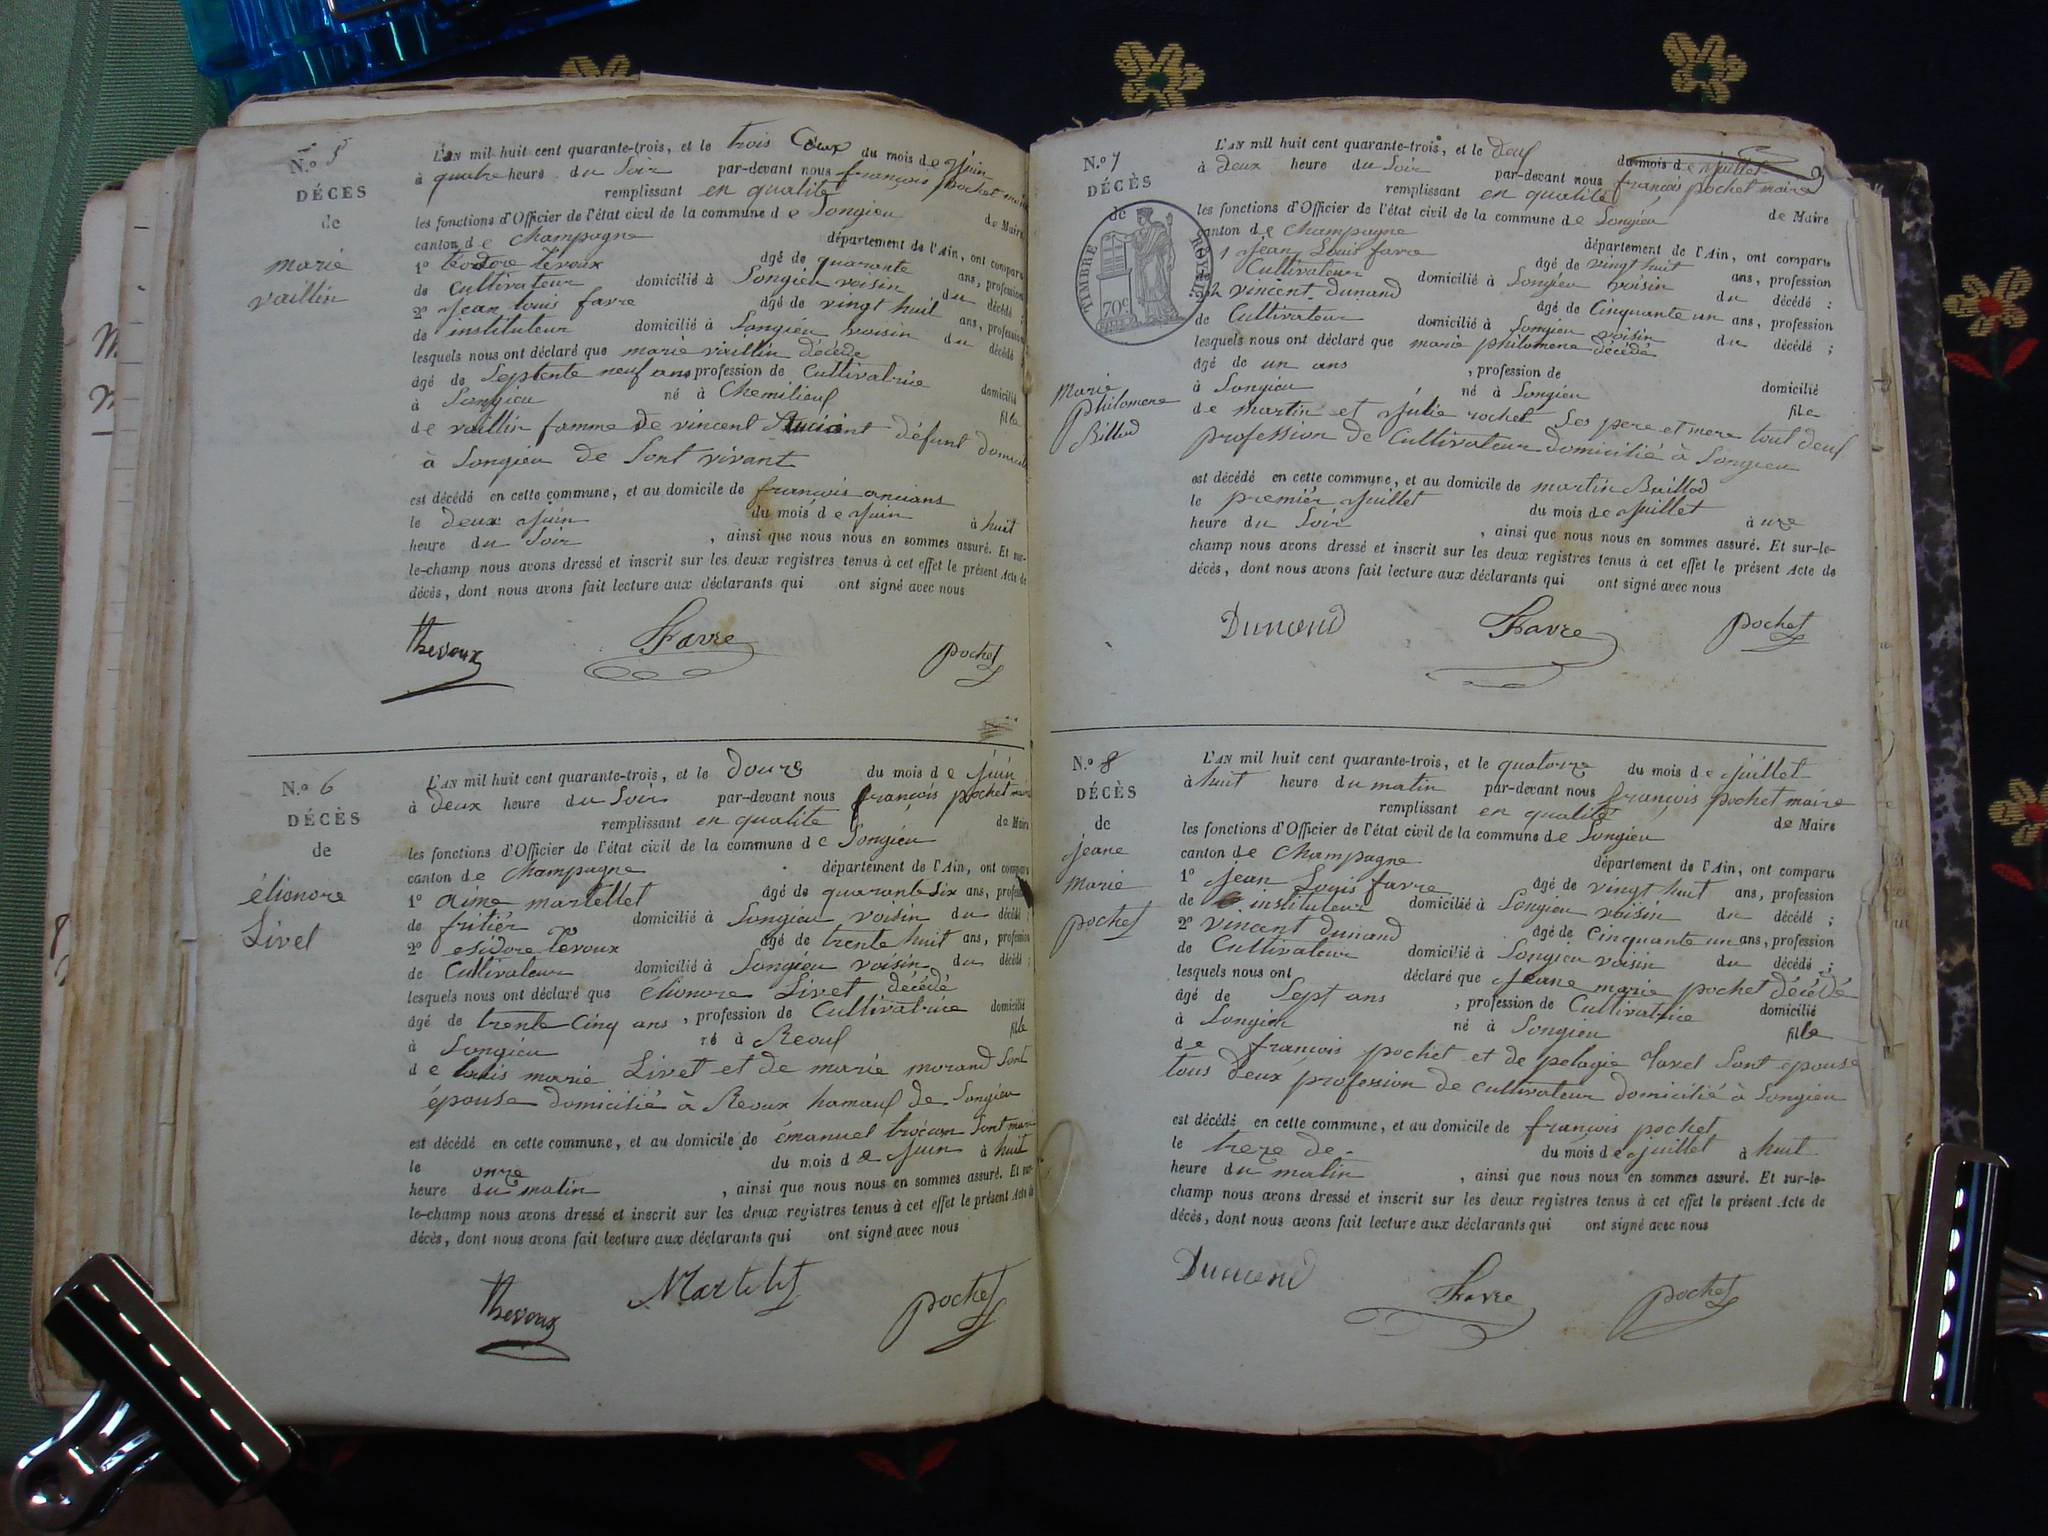 N.º 5
DÉCES
de
marie
vaillin
L'AN mil huit cent quarante-trois, et le trois du mois de juin
à quatre heure du Soir par-devant nous françois pochet
remplissant en qualité de Maire
les fonctions d'Officier de l'état civil de la commune de Songieu
canton de Champagne département de l'Ain, ont comparu
1º tévoux âgé de quarante ans, profession
de Cultivateur domicilié à Songieu voisin du décédé ;
2º Jean Louis favre âgé de vingt huit ans, profession
de instituteur domicilié à Songieu voisin du décédé
lesquels nous ont déclaré que marie vaillin décédé
âgé de Septente neuf ans profession de Cultivatrice domicilié
à Songieu né à Chemilieu fille
de vaillin famme de vincent défunt
à Songieu de Sont vivant
est décédé en cette commune, et au domicile de françois ancians
le deux juin du mois de juin à huit
heure du Soir , ainsi que nous nous en sommes assuré. Et sur-
le-champ nous avons dressé et inscrit sur les deux registres tenus à cet effet le présent Acte de
décès, dont nous avons fait lecture aux déclarants qui ont signé avec nous
thevoux Favre pochet
N.º 6
DÉCÈS
de
élionore
Livet
L'AN mil huit cent quarante-trois, et le douze du mois de juin
à deux heure du Soir par-devant nous françois pochet
remplissant en qualité de Maire
les fonctions d'Officier de l'état civil de la commune de Songieu
canton de Champagne département de l'Ain, ont comparu
1º aime martellet âgé de quarante six ans, profession
de fritier domicilié à Songieu voisin du décédé ;
2º esidore tevoux âgé de trente huit ans, profession
de Cultivateur domicilié à Songieu voisin du décédé ;
lesquels nous ont déclaré que élionore Livet décédé
âgé de trente Cinq ans , profession de Cultivatrice domicilié
à Songieu né à Reouf fille
de Louis marie Livet et de marie morand Sont
épouse domicilié à Reoux hamauf de Songieu
est décédé en cette commune, et au domicile de émanuel Sont mari
le onze du mois de juin à huit
heure du matin , ainsi que nous nous en sommes assuré. Et sur-
le-champ nous avons dressé et inscrit sur les deux registres tenus à cet effet le présent Acte de
décès, dont nous avons fait lecture aux déclarants qui ont signé avec nous
thevoux Martelet pochet
N.º 7
DÉCÈS
de
TIMBRE ROYAL
70 c
Marie
Philomene
Billod
L'AN mil huit cent quarante-trois, et le deuf du mois de juillet
à deux heure du Soir par-devant nous françois pochet maire
remplissant en qualité de Maire
les fonctions d'Officier de l'état civil de la commune de Songieu
canton de Champagne département de l'Ain, ont comparu
1 Jean Louis favre âgé de vingt huit ans, profession
Cultivateur domicilié à Songieu voisin du décédé ;
2 vincent dunand âgé de Cinquante un ans, profession
de Cultivateur domicilié à Songieu voisin du décédé ;
lesquels nous ont déclaré que marie philomene décédé
âgé de un ans , profession de domicilié
à Songieu né à Songieu fille
de martin et julie rochet Ses pere et mere tout deuf
profession de Cultivateur domicilié à Songieu
est décédé en cette commune, et au domicile de martin Baillod
le premier juillet du mois de juillet à une
heure du Soir , ainsi que nous nous en sommes assuré. Et sur-le-
champ nous avons dressé et inscrit sur les deux registres tenus à cet effet le présent Acte de
décès, dont nous avons fait lecture aux déclarants qui ont signé avec nous
Dunend Favre pochet
N.º 8
DÉCÈS
de
jeane
marie
pochet
L'AN mil huit cent quarante-trois, et le quatorze du mois de juillet
à huit heure du matin par-devant nous françois pochet maire
remplissant en qualité de Maire
les fonctions d'Officier de l'état civil de la commune de Songieu
canton de Champagne département de l'Ain, ont comparu
1º Jean Louis favre âgé de vingt huit ans, profession
de instituteur domicilié à Songieu voisin du décédé ;
2º vincent dunand âgé de Cinquante un ans, profession
de Cultivateur domicilié à Songieu voisin du décédé ;
lesquels nous ont déclaré que jeane marie pochet décédé
âgé de Sept ans , profession de Cultivatrice domicilié
à Songieu né à Songieu fille
de françois pochet et de pelagie tavel Sont epouse
tous deux profession de cultivateur domicilié à Songieu
est décédé en cette commune, et au domicile de françois pochet
le treze de du mois de juillet à huit
heure du matin , ainsi que nous nous en sommes assuré. Et sur-le-
champ nous avons dressé et inscrit sur les deux registres tenus à cet effet le présent Acte de
décès, dont nous avons fait lecture aux déclarants qui ont signé avec nous
Dunend Favre pochet